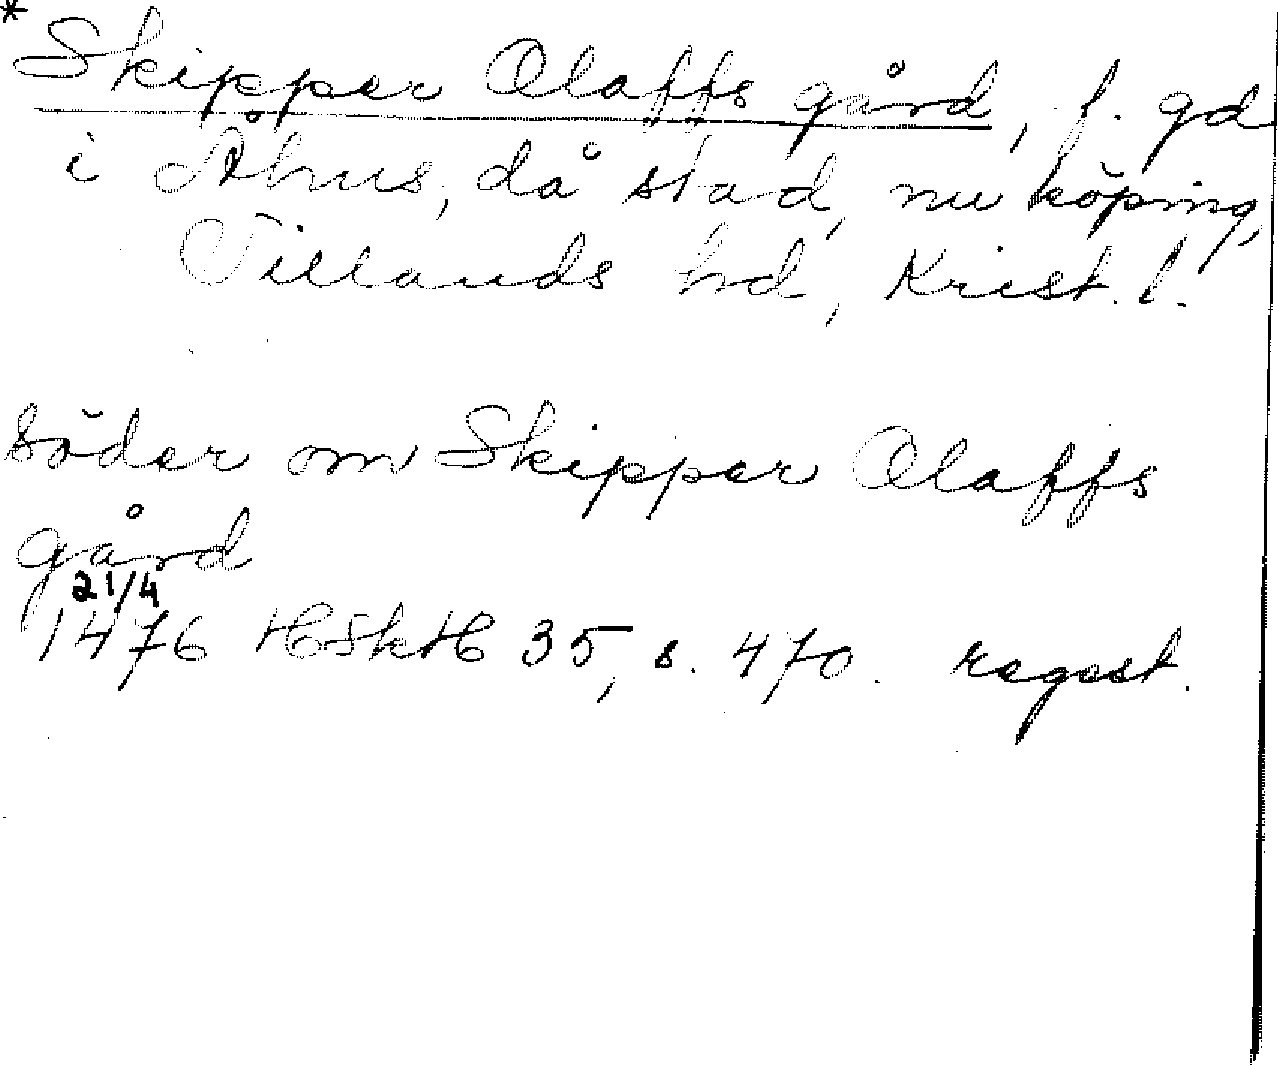 * Skipper Olaffs gård, f. gd
i Åhus, då stad, nu köping,
Villands hd, Krist. l.
söder om Skipper Olaffs
gård
21/4
1476 HSkH 35, s. 470. regest.